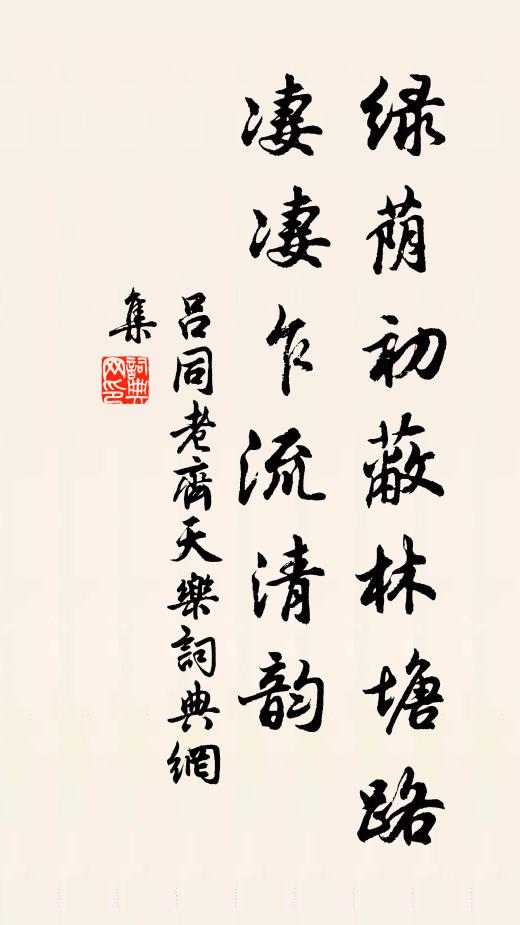 绿荫初蔽林塘路
凄凄乍流清韵
吕同老齊天樂詞典網
集
詞典
网印